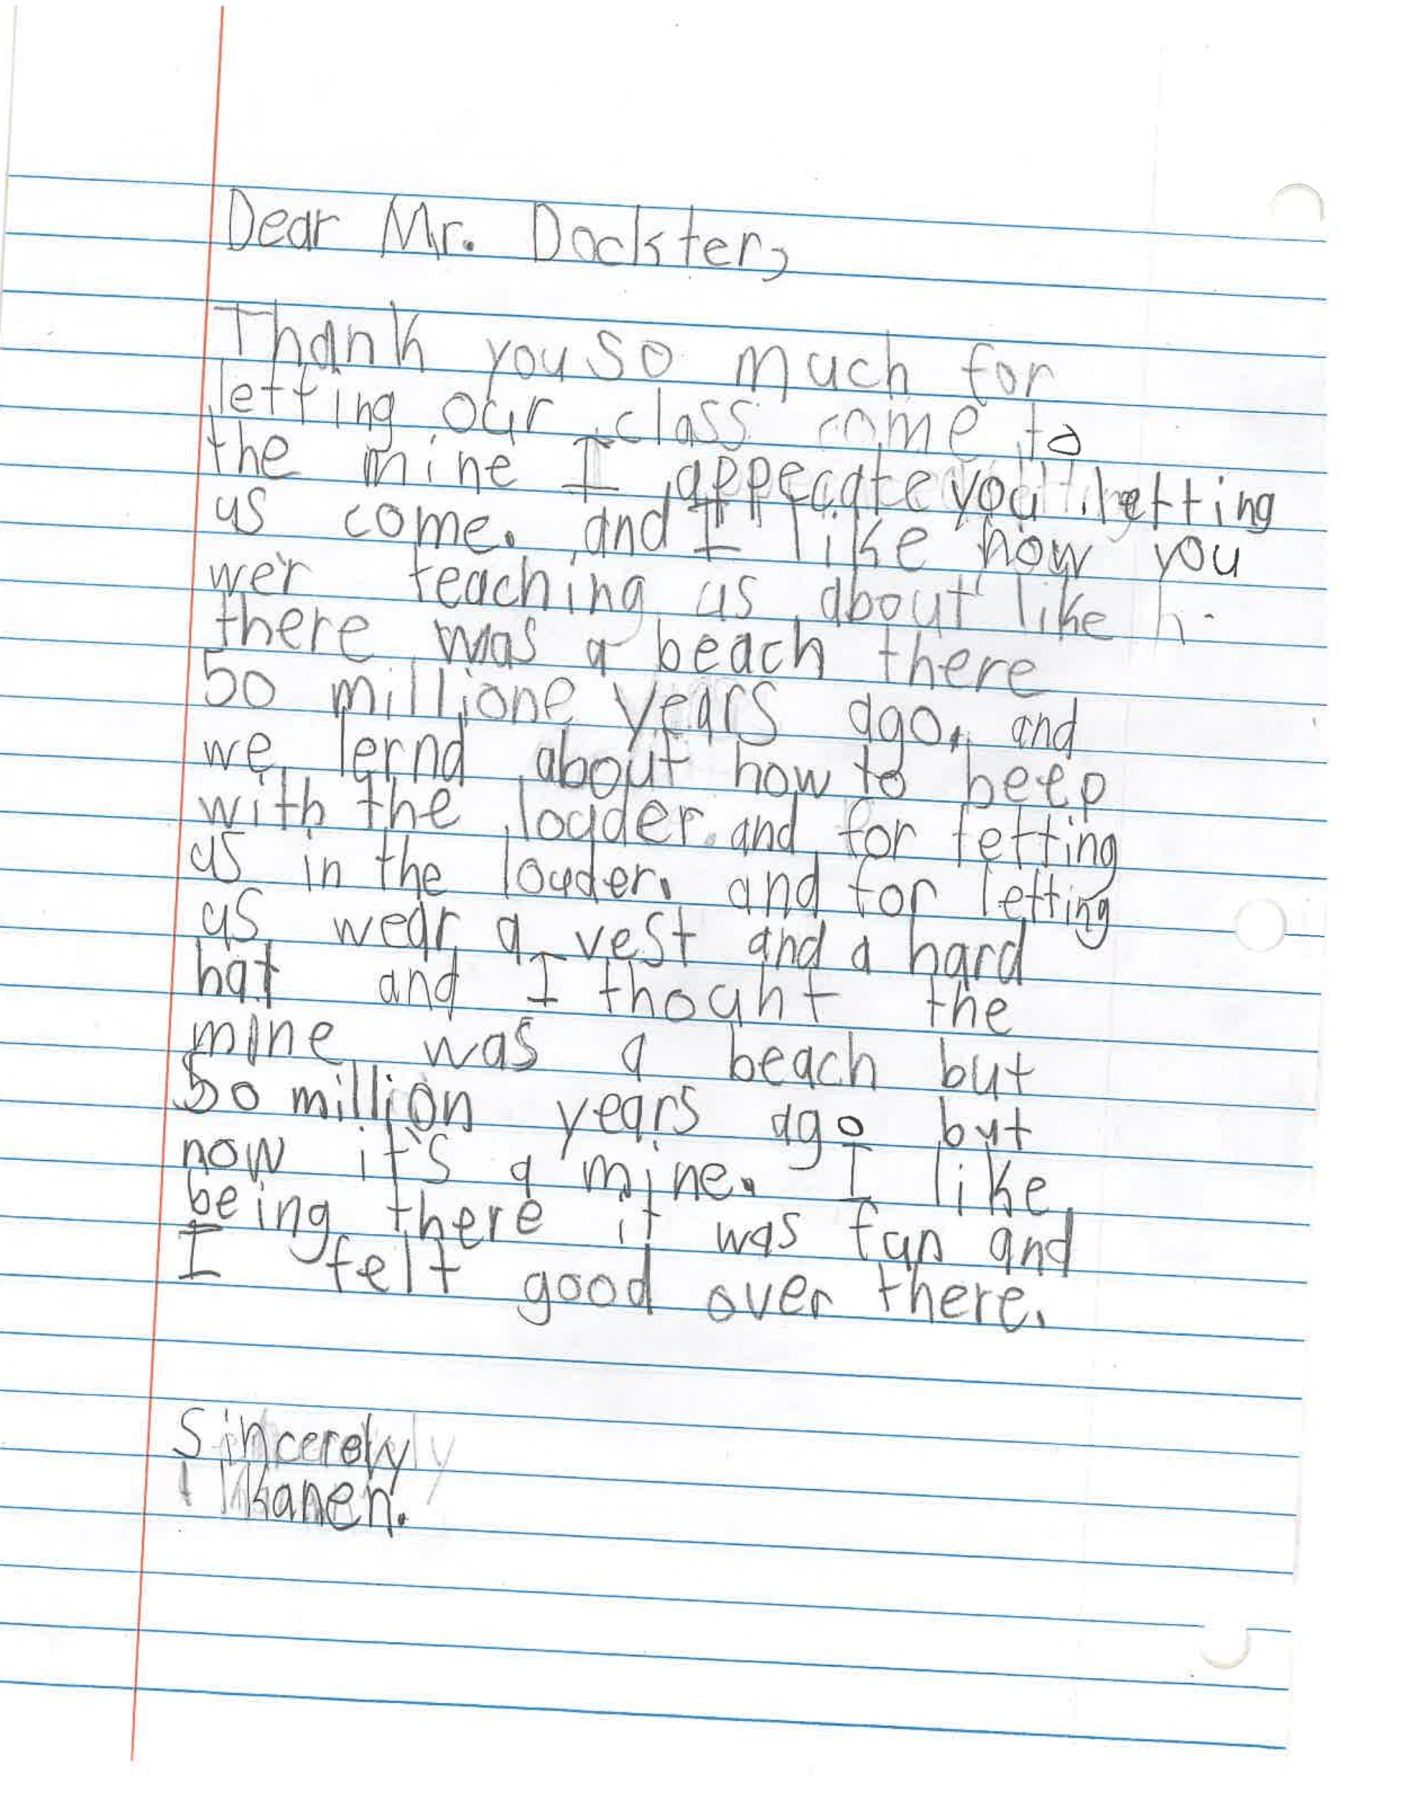 Dear Mr. Dockter,
Thank you so much for
letting our class come to
the mine I appecate you letting
us come. and I like how you
wer teaching us about like h
there was a beach there
50 millione years ago. and
we lernd about how to beep
with the loader. and for letting
us in the loader. and for letting
us wear a vest and a hard
hat and I thoaht the
mine was a beach but
50 million years ago but
now it's a mine. I like
being there it was fun and
I felt good over there.
Sincerely
Kanen.